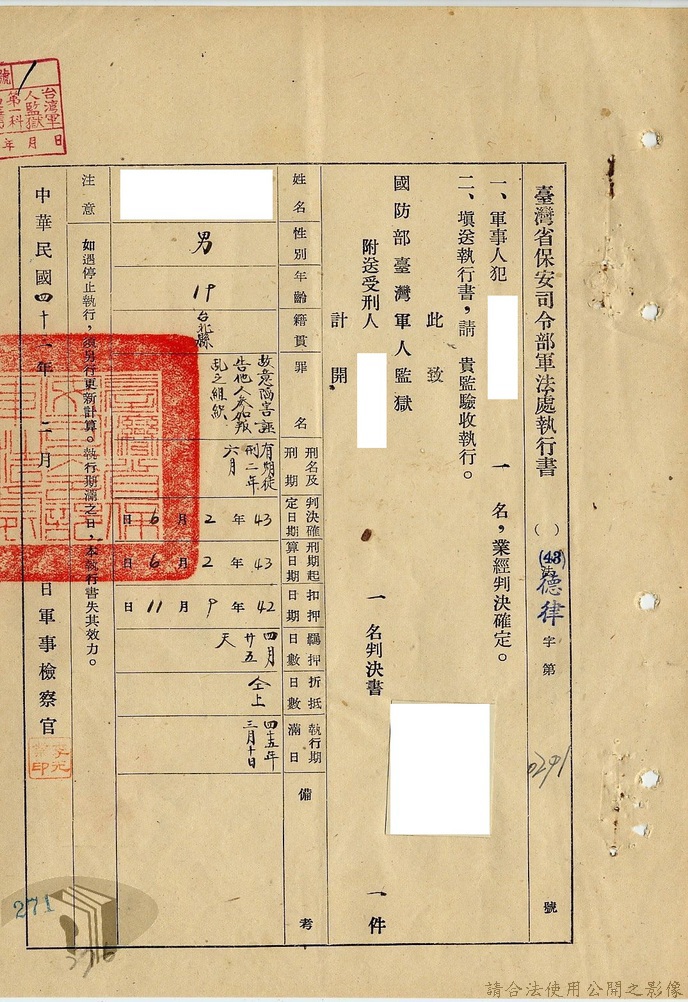 臺灣省保安司令部軍法處執行書
( ) 法 (43) 德律 字第 0291 號
一、軍事人犯 一名,業經判決確定。
二、塡送執行書,請 貴監驗收執行。
此致
國防部臺灣軍人監獄
附送受刑人 一名判決書 一件
計開
姓名
性別 男
年齡 19
籍貫 台北縣
罪名 故意陷害誣告他人參加叛亂之組織
刑名及刑期 有期徒刑二年六月
判決確定日期 43年2月6日
刑期起算日期 43年2月6日
扣押日期 42年9月11日
羈押日數 四月廿五天
折抵日數 仝上
執行期滿日 四十五年三月十日
備考
注意 如遇停止執行,須另行更新計算。執行期滿之日,本執行書失其效力。
中華民國四十 年 二月 日軍事檢察官
號
台灣軍人監獄
第一科
年月日
271
276
請合法使用公開之影像